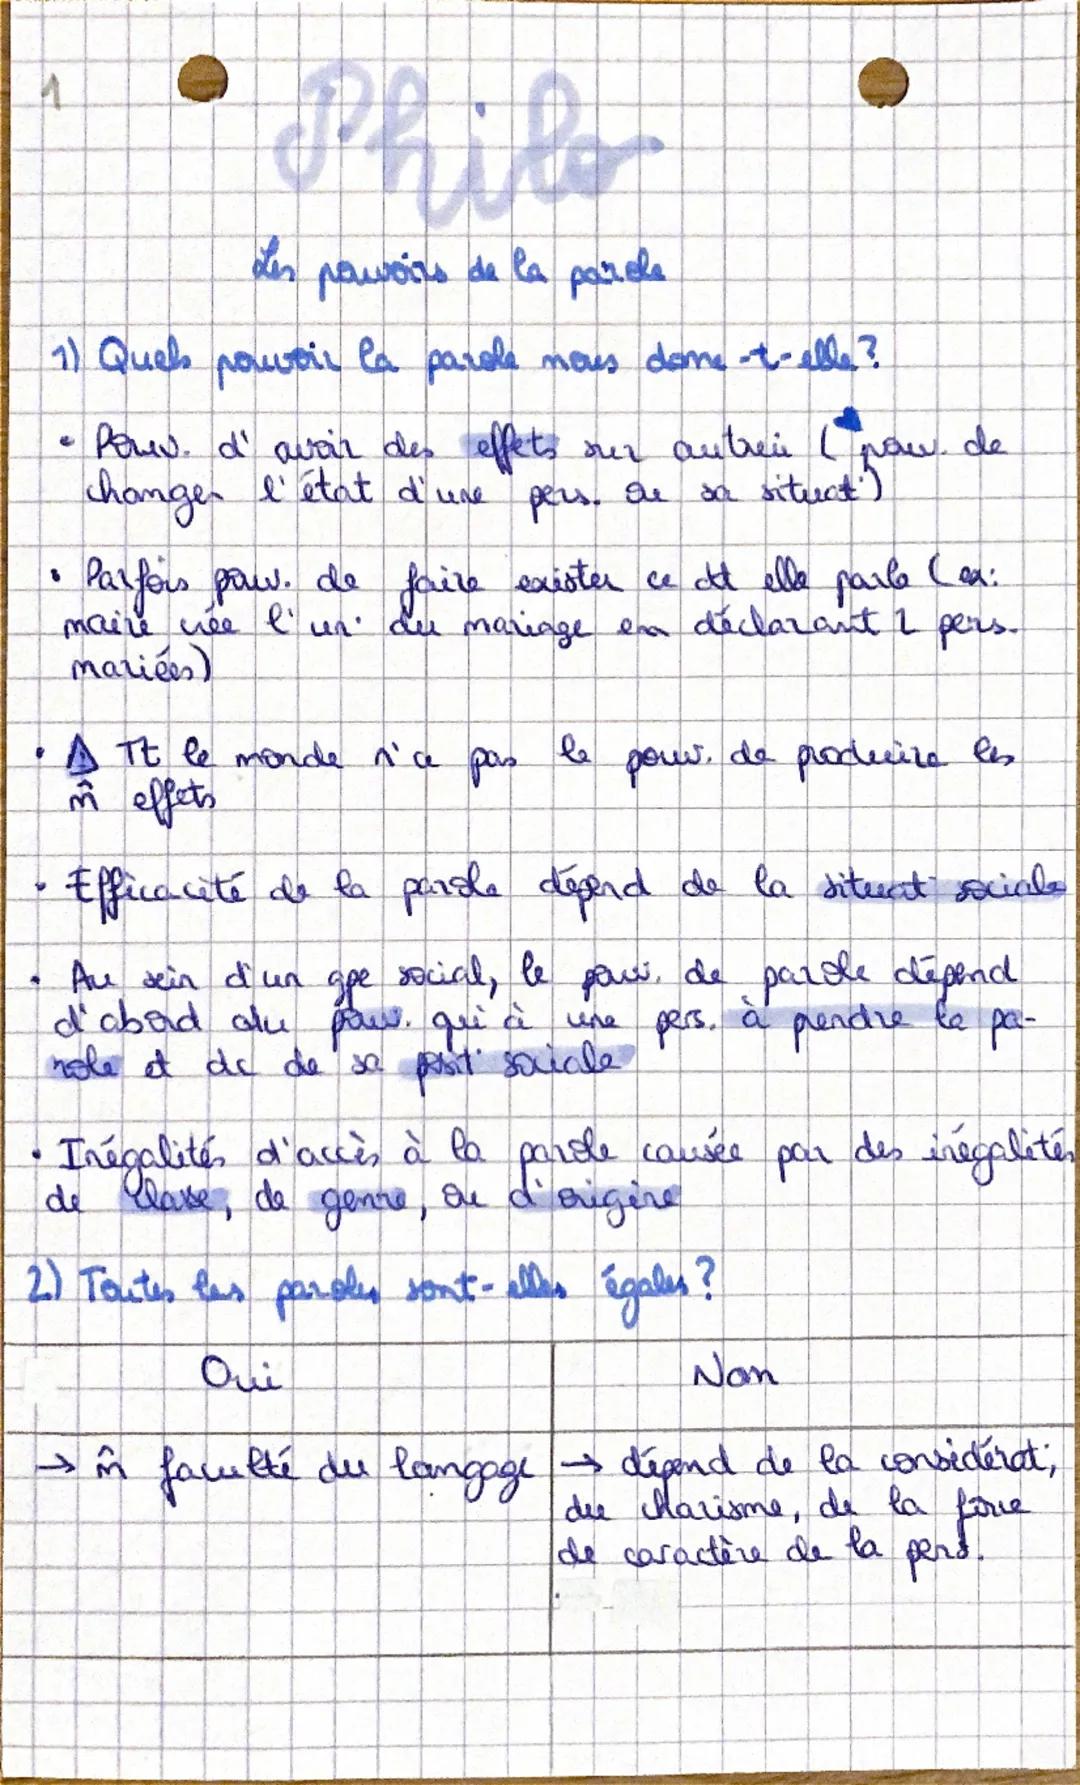 1
Philo
Les pouvoirs de la parole
1) Quels pouvoir la parole nous donne-t-elle ?
• Pouv. d'avoir des effets sur autrui ( pouv. de
changer l'état d'une pers. ou sa situat°)
• Parfois pouv. de faire exister ce dt elle parle (ex:
maire crée l'un° du mariage en déclarant 2 pers.
mariées)
• ⚠ Tt le monde n'a pas le pouv. de produire les
m̂ effets
• Efficacité de la parole dépend de la situat° sociale
• Au sein d'un gpe social, le pouv. de parole dépend
d'abord du pouv. qui a une pers. à prendre la pa-
role et dc de sa posit° sociale
• Inégalités d'accès à la parole causée par des inégalités
de classe, de genre, ou d'origine
2) Toutes les paroles sont-elles égales ?
Oui
Non
→ m̂ faculté du langage
→ dépend de la considérat°,
du charisme, de la force
de caractère de la pers.